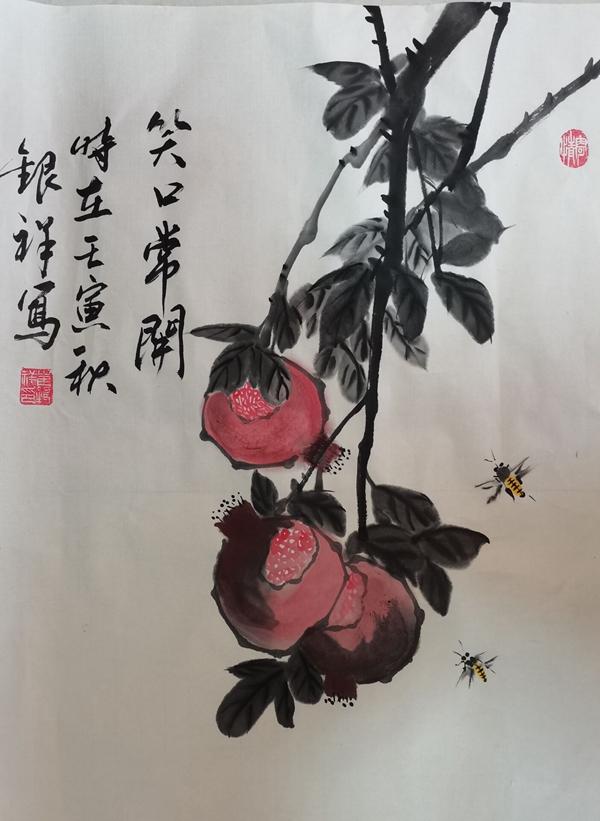 笑口常開
時在壬寅秋
銀祥寫